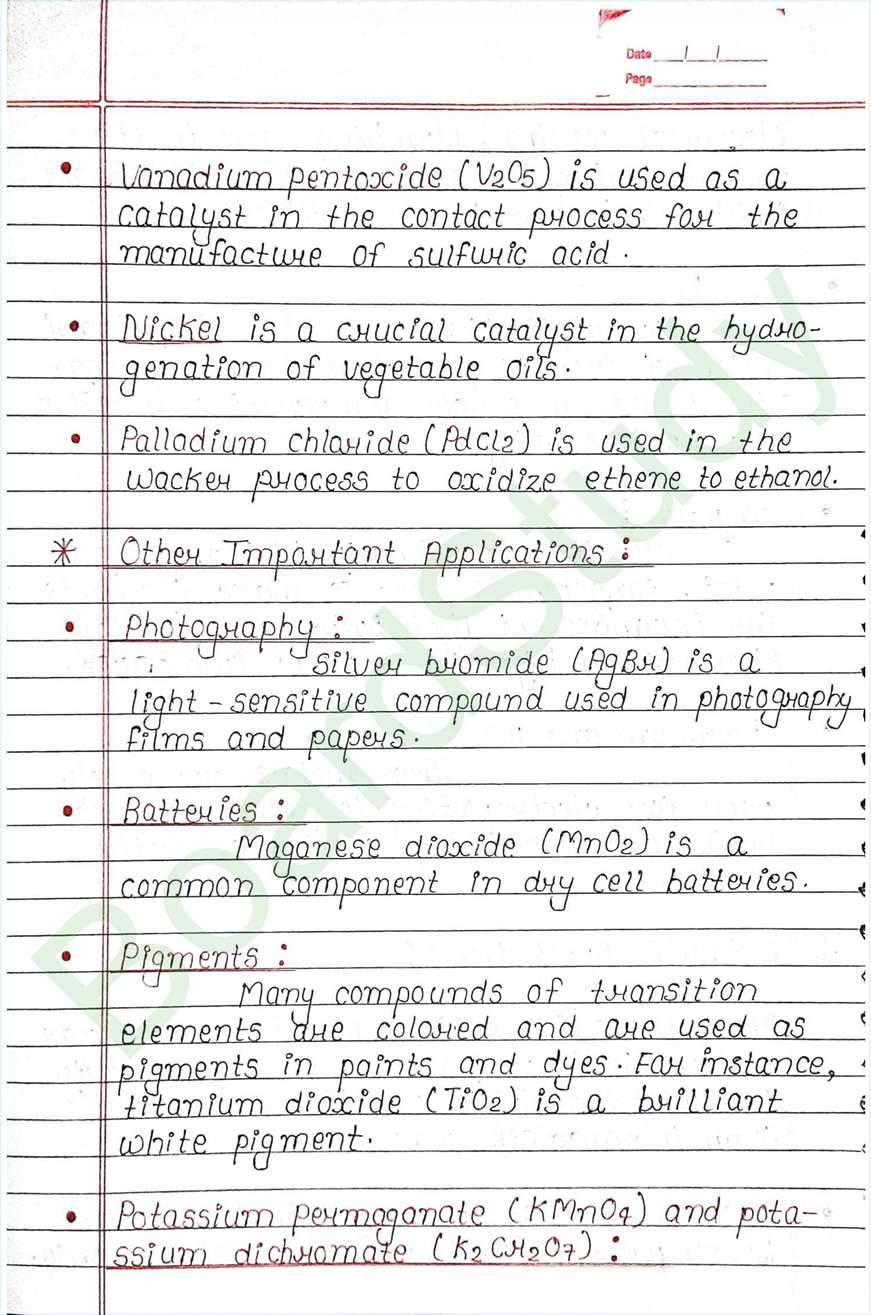 Date / /
Page
• Vanadium pentoxide (V2O5) is used as a
catalyst in the contact process for the
manufacture of sulfuric acid.
• Nickel is a crucial catalyst in the hydro-
genation of vegetable oils.
• Palladium chloride (PdCl2) is used in the
wacker process to oxidize ethene to ethanol.
* Other Important Applications :
• Photography :
Silver bromide (AgBr) is a
light-sensitive compound used in photography
films and papers.
• Batteries :
Maganese dioxide (MnO2) is a
common component in dry cell batteries.
• Pigments :
Many compounds of transition
elements are colored and are used as
pigments in paints and dyes. For instance,
titanium dioxide (TiO2) is a brilliant
white pigment.
• Potassium permaganate (KMnO4) and pota-
ssium dichromate (K2Cr2O7) :
BoardStudy